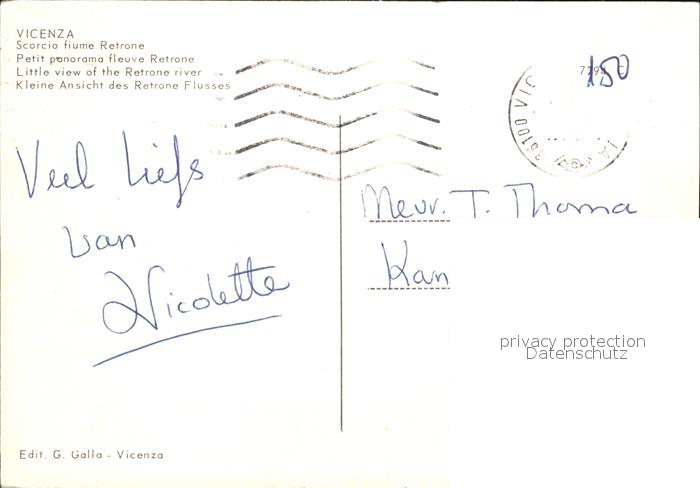 VICENZA
Scorcio fiume Retrone
Petit panorama fleuve Retrone
Little view of the Retrone river
Kleine Ansicht des Retrone Flusses
150
36100 VIC
Veel liefs
van
Nicolette
Mevr. T. Thoma
Kan
privacy protection
Datenschutz
Edit. G. Galla - Vicenza